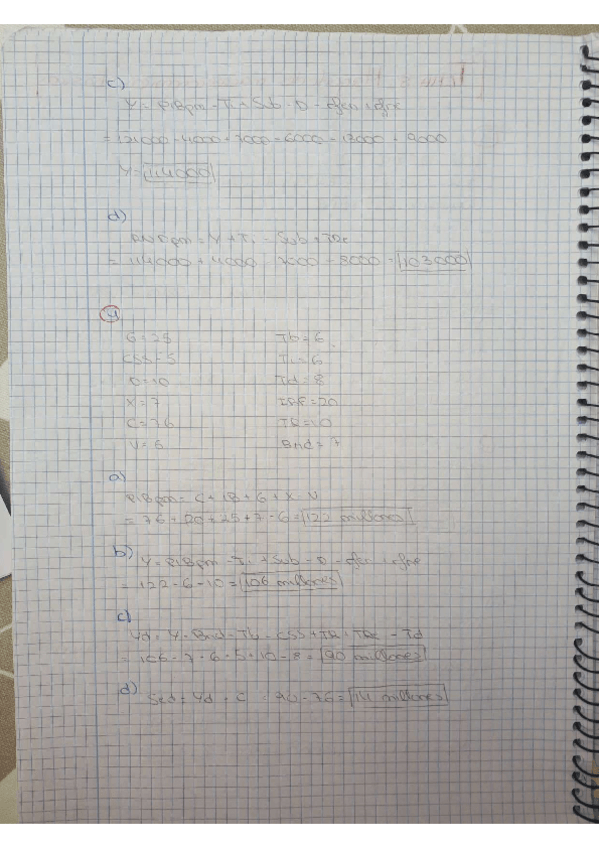 c)
Y = PIBpm - Ti + Sub - D - rfen + rfre
= 121000 - 4000 + 7000 - 6000 - 13000 + 9000
Y = 114000
d)
Y + Ti - Sub
= 114000 + 4000 - 7000 - 8000 = 103000
4
G = 25 Tb = 6
CSS = 5 Ti = 6
D = 10 Td = 8
X = 7 = 20
C = 76 TR = 10
M = 6 Bnd = 7
a)
PIBpm = C + IB + G + X - M
= 76 + 20 + 25 + 7 - 6 = 122 millones
b)
Y = PIBpm - Ti + Sub - D - rfen + rfre
= 122 - 6 - 10 = 106 millones
c)
Yd = Y - Bnd - Tb - CSS + TR + - Td
= 106 - 7 - 6 - 5 + 10 - 8 = 90 millones
d) Yd - C = 90 - 76 = 14 millones